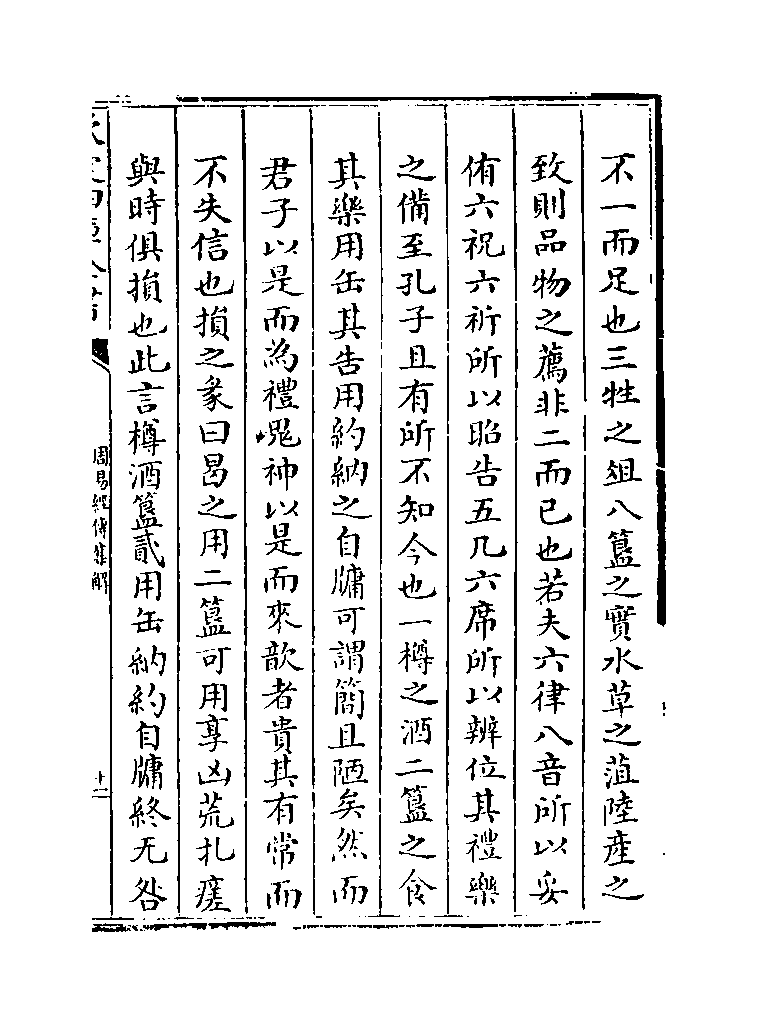 不一而足也三牲之俎八簋之實水草之菹陸産之
致則品物之薦非二而已也若夫六律八音所以妥
侑六祝六祈所以昭告五几六席所以辨位其禮樂
之備至孔子且有所不知今也一樽之酒二簋之食
其樂用缶其告用約納之自牖可謂簡且陋矣然而
君子以是而為禮鬼神以是而來歆者貴其有常而
不失信也損之彖曰曷之用二簋可用享凶荒扎瘥
與時俱損也此言樽酒簋貳用缶納約自牖終无咎
周易經傳集解
十二